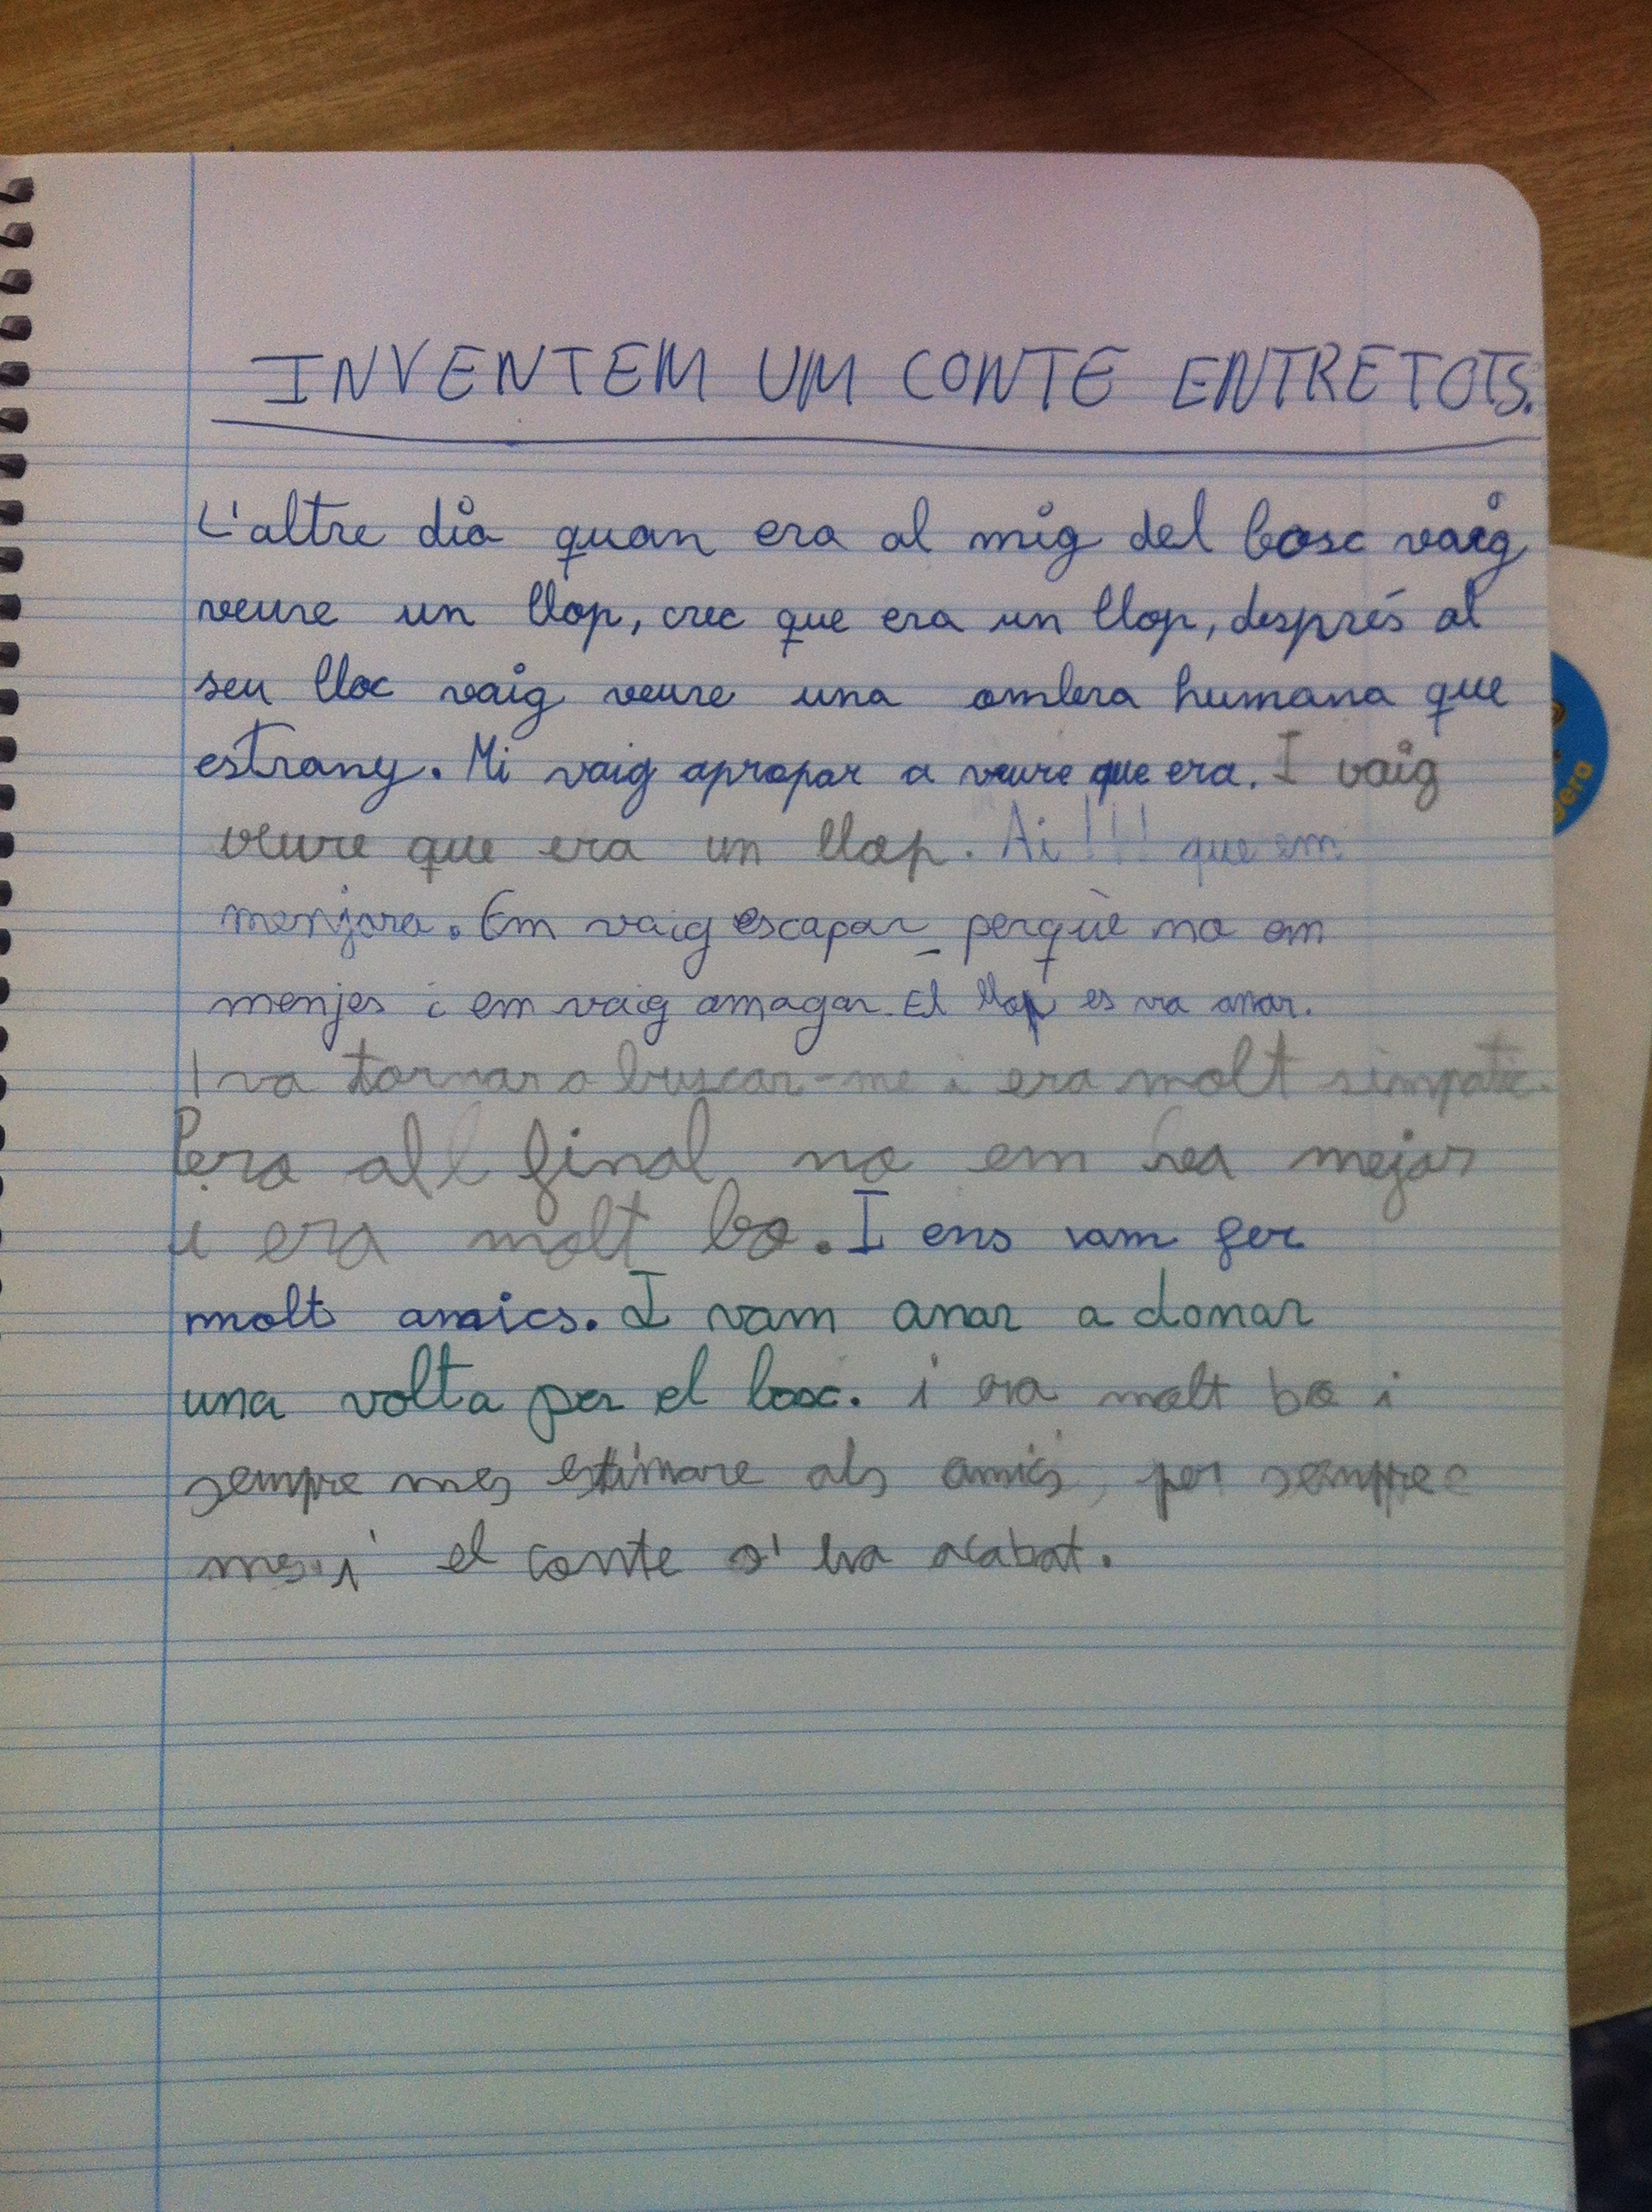 INVENTEM UM CONTE ENTRE TOTS.
L'altre dia quan era al mig del bosc vaig
veure un llop, crec que era un llop, després al
seu lloc vaig veure una ombra humana que
estrany. Mi vaig apropar a veure que era. I vaig
veure que era un llop. Ai!!! que em
menjara. Em vaig escapar perquè no em
menjes i em vaig amagar. El llop es va anar.
I va tornar a buscar-me i era molt simpatic.
Pero all final no em va mejar
i era molt bo. I ens vam fer
molts amics. I vam anar a donar
una volta per el bosc. i era molt bo i
sempre mes estimare als amics, per sempre
mes. i el conte s'ha acabat.
gera